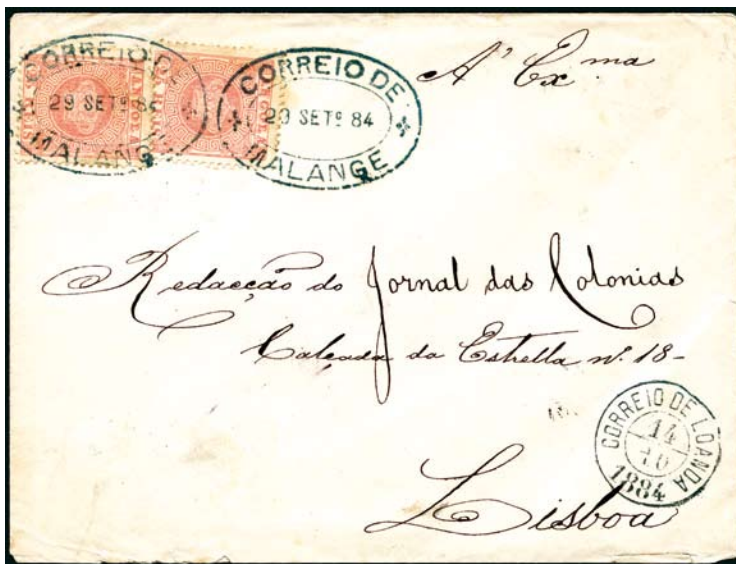 CORREIO DE
29 SETº 84
MALANGE
CORREIO DE
29 SETº 84
MALANGE
A' Exma
Redacção do Jornal das Colonias
Calçada da Estrella nº 18-
CORREIO DE LOANDA
14
10
1884
Lisboa